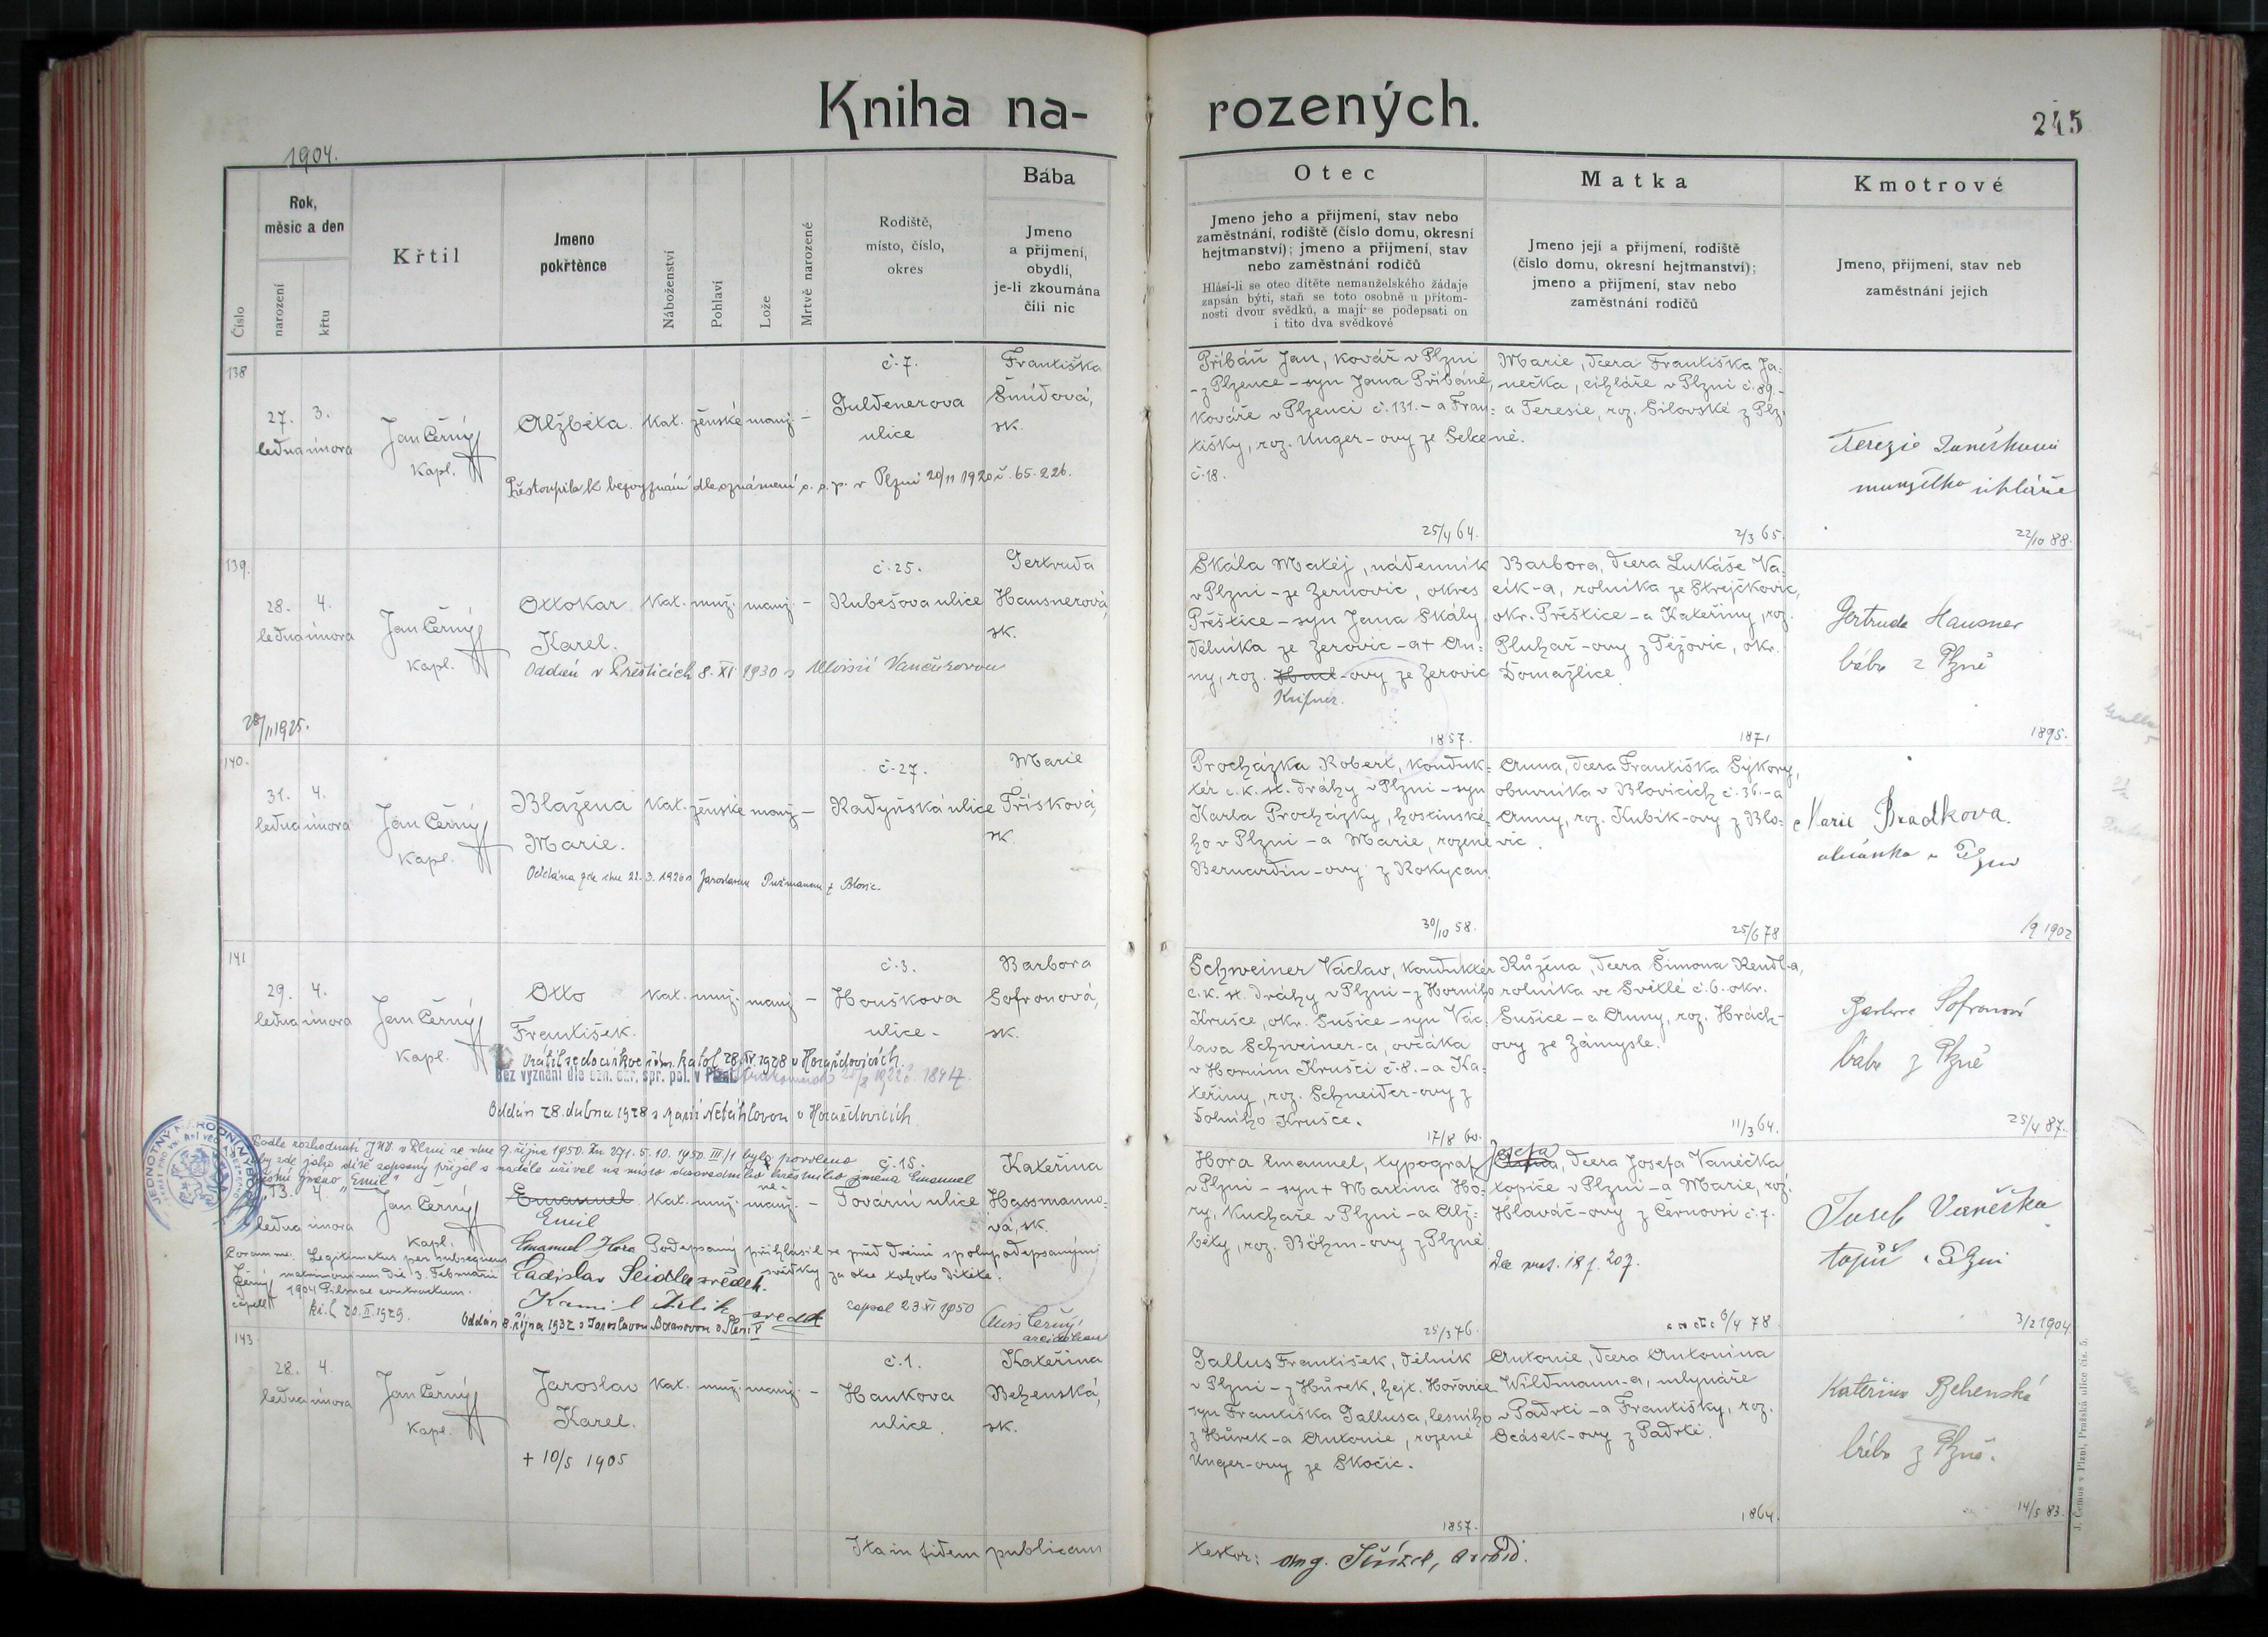 Kniha na-
rozených.
245
1904.
Číslo
Rok,
měsíc a den
narození
křtu
Křtil
Jmeno
pokřtěnce
Náboženství
Pohlaví
Lože
Mrtvě narozené
Rodiště,
místo, číslo,
okres
Bába
Jmeno
a přijmení,
obydlí,
je-li zkoumána
čili nic
Otec
Jmeno jeho a přijmení, stav nebo
zaměstnání, rodiště (číslo domu, okresní
hejtmanství); jmeno a přijmení, stav
nebo zaměstnání rodičů
Hlásí-li se otec dítěte nemanželského žádaje
zapsán býti, staň se toto osobně u přítom-
nosti dvou svědků, a mají se podepsati on
i tito dva svědkové
Matka
Jmeno její a přijmení, rodiště
(číslo domu, okresní hejtmanství);
jmeno a přijmení, stav nebo
zaměstnání rodičů
Kmotrové
Jmeno, přijmení, stav neb
zaměstnání jejich
138
27. 3.
ledna února
Jan Černý
kapl.
Alžběta. kat. ženské manž. -
č. 7.
Guldenerova
ulice
Františka
Šmídová,
sk.
Přestoupila k bezvyznání dle oznámení o. s. p. v Plzni 20/11 1920 č. 65.226.
Přibáň Jan, kovář v Plzni
- z Plzence - syn Jana Přibáně,
kováře v Plzenci č. 131. - a Fran-
tišky, roz. Unger-ovy ze
č. 18.
25/4 64.
Marie, dcera Františka Ja-
nečka, cihláře v Plzni č. 89. -
a Teresie, roz. Silovské z Plz-
ně.
2/3 65.
Terezie
manželka cihláře
22/10 88.
139.
28. 4.
ledna února
Jan Černý
kapl.
Ottokar
Karel.
kat. muž. manž. -
č. 25.
Kubešova ulice
Gertruda
Hausnerová,
sk.
Oddán v Přešticích 8. XI. 1930 s Aloisií Vančurovou
28/11 1925.
Skála Matěj, nádenník
v Plzni - ze Zerovic, okres
Přeštice - syn Jana Skály,
dělníka ze Zerovic - a + An-
ny, roz. -ovy ze Zerovic
1857.
Barbora, dcera Lukáše Va-
cík-a, rolníka ze Strejčkovic,
okr. Přeštice - a Kateřiny, roz.
Pluhař-ovy z Těžovic, okr.
Domažlice.
1871
Gertrude Hausner
bába z Plzně
1895.
140.
31. 4.
ledna února
Jan Černý
kapl.
Blažena
Marie.
kat. ženské manž -
č. 27.
Radyňská ulice
Marie
Třísková,
sk.
Oddána zde dne 22. 3. 1926 s Jaroslavem z Blovic.
Procházka Robert, konduk-
tér c. k. st. dráhy v Plzni - syn
Karla Procházky, hostinské-
ho v Plzni - a Marie, rozené
Bernardin-ovy z Rokycan.
30/10 58.
Anna, dcera Františka Sýkory,
obuvníka v Blovicích č. 36. - a
Anny, roz. Kubík-ovy z Blo-
vic.
25/6 78
Marie Bradkova.
v Plzni
/9 1902
141
29. 4.
ledna února
Jan Černý
kapl.
Otto
František.
kat. muž. manž -
č. 3.
Houškova
ulice -
Barbora
Sofronová,
sk.
Vrátil se do církve řím. katol. 28. IV 1928 v Horažďovicích.
Bez vyznání dle ozn. okr. spr. pol. v Plzni
Oddán 28. dubna 1928 s Marií Netáhlovou v Horažďovicích
Schweiner Václav, konduktér
c. k. st. dráhy v Plzni - z Horního
Krušce, okr. Sušice - syn Vác-
lava Schweiner-a, ovčáka
v Horním Krušci č. 8. - a Ka-
teřiny, roz. Schneider-ovy z
Dolního Krušce.
17/8 60.
Růžena, dcera Šimona Rendl-a,
rolníka ve Světlé č. 6. okr.
Sušice - a Anny, roz. Hrách-
ovy ze Zámysle.
11/3 64.
Barbora Sofronová
bába z Plzně
25/4 87.
JEDNOTNÝ NÁRODNÍ VÝBOR
Podle rozhodnutí JNV. v Plzni ze dne 9. října 1950. Zn. 271. 5. 10. 1950. III/1 bylo povoleno
aby zde jako dítě zapsaný přijal a nadále užíval na místo dosavadního křestního jména Emanuel
jméno "Emil"
13. 4.
ledna února
Jan Černý
kapl.
Emanuel
Emil
kat. muž. ne-
manž. -
č. 15.
Tovární ulice
Kateřina
Hassmanno-
vá, sk.
Coram me.
Černý
capell.
Legitimatus per subsequens
matrimonium die 3. Februarii
1904 Pilsnae contractum.
kř. l. 20. II. 1929.
Emanuel Hora Podepsaný přihlásil se před dvěmi spolupodepsanými
svědky za otce tohoto dítěte.
Ladislav Seidler svědek.
Kamil svědek
zapsal 23 XI 1950
Alois Černý
arciděkan
Oddán 8. října 1932 s Jaroslavou v Plzni V
Hora Emanuel, typograf
v Plzni - syn + Martina Ho-
ry, kuchaře v Plzni - a Alž-
běty, roz. Böhm-ovy z Plzně
25/3 76.
Josefa
Anna, dcera Josefa Vaněčka
topiče v Plzni - a Marie, roz.
Hlaváč-ovy z Černovsi č. 7.
6/4 78
Josef Vaněčka
topič v Plzni
3/2 1904.
143
28. 4.
ledna února
Jan Černý
kapl.
Jaroslav
Karel.
kat. muž. manž. -
č. 1.
Hankova
ulice.
Kateřina
Behenská,
sk.
+ 10/5 1905
Gallus František, dělník
v Plzni - z Hůrek, hejt. Hořovice
syn Františka Gallusa, lesního
z Hůrek - a Antonie, rozené
Unger-ovy ze Skočic.
1857.
Antonie, dcera Antonína
Wildmann-a, mlynáře
v Padrti - a Františky, roz.
Ocásek-ovy z Padrtě.
1864.
Kateřina Behenská
bába z Plzně.
14/5 83.
Ita in fidem publicam
testor: arcid.
J. Čemus v Plzni, Pražská ulice čís. 5.